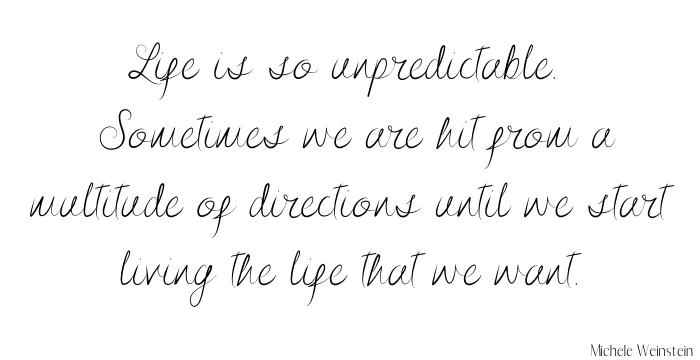 Life is so unpredictable.
Sometimes we are hit from a
multitude of directions until we start
living the life that we want.
Michele Weinstein